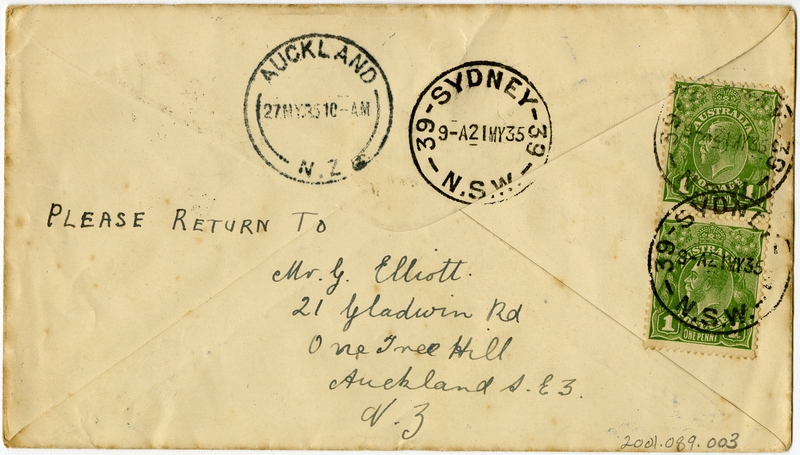 AUCKLAND
27MY3510-AM
N.Z
39-SYDNEY-39
9-A21MY35
N.S.W.
AUSTRALIA
1 1
39-SYDNEY-
9-A21MY35
N.S.W.
1
ONE PENNY
PLEASE RETURN TO
Mr. G. Elliott.
21 Gladwin Rd
One Tree Hill
Auckland S.E3.
N.Z
2001.089.003